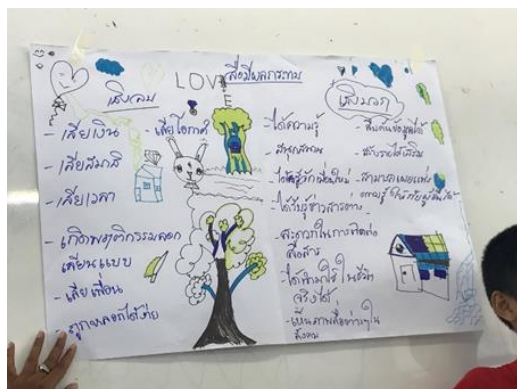 LOV
สื่อมีผลกระทบ
เชิงลบ
- เสียเงิน
- เสียโอกาส
- เสียสมาธิ
- เสียเวลา
- เกิดพฤติกรรมลอก
เลียนแบบ
- เสียเพื่อน
- ถูกหลอกได้ง่าย
เชิงบวก
- ได้ความรู้
- สนุกสนาน
- ได้รู้จักเพื่อนใหม่
- ได้รับรู้ข่าวสารต่างๆ
- สะดวกในการติดต่อ
สื่อสาร
- ได้นำมาใช้ในชีวิต
จริงได้
- เห็นภาพสื่อต่างๆใน
สังคม
- สืบค้นข้อมูลได้
- สร้างรายได้เสริม
- สามารถเผยแพร่
ความรู้ให้กับผู้อื่นได้